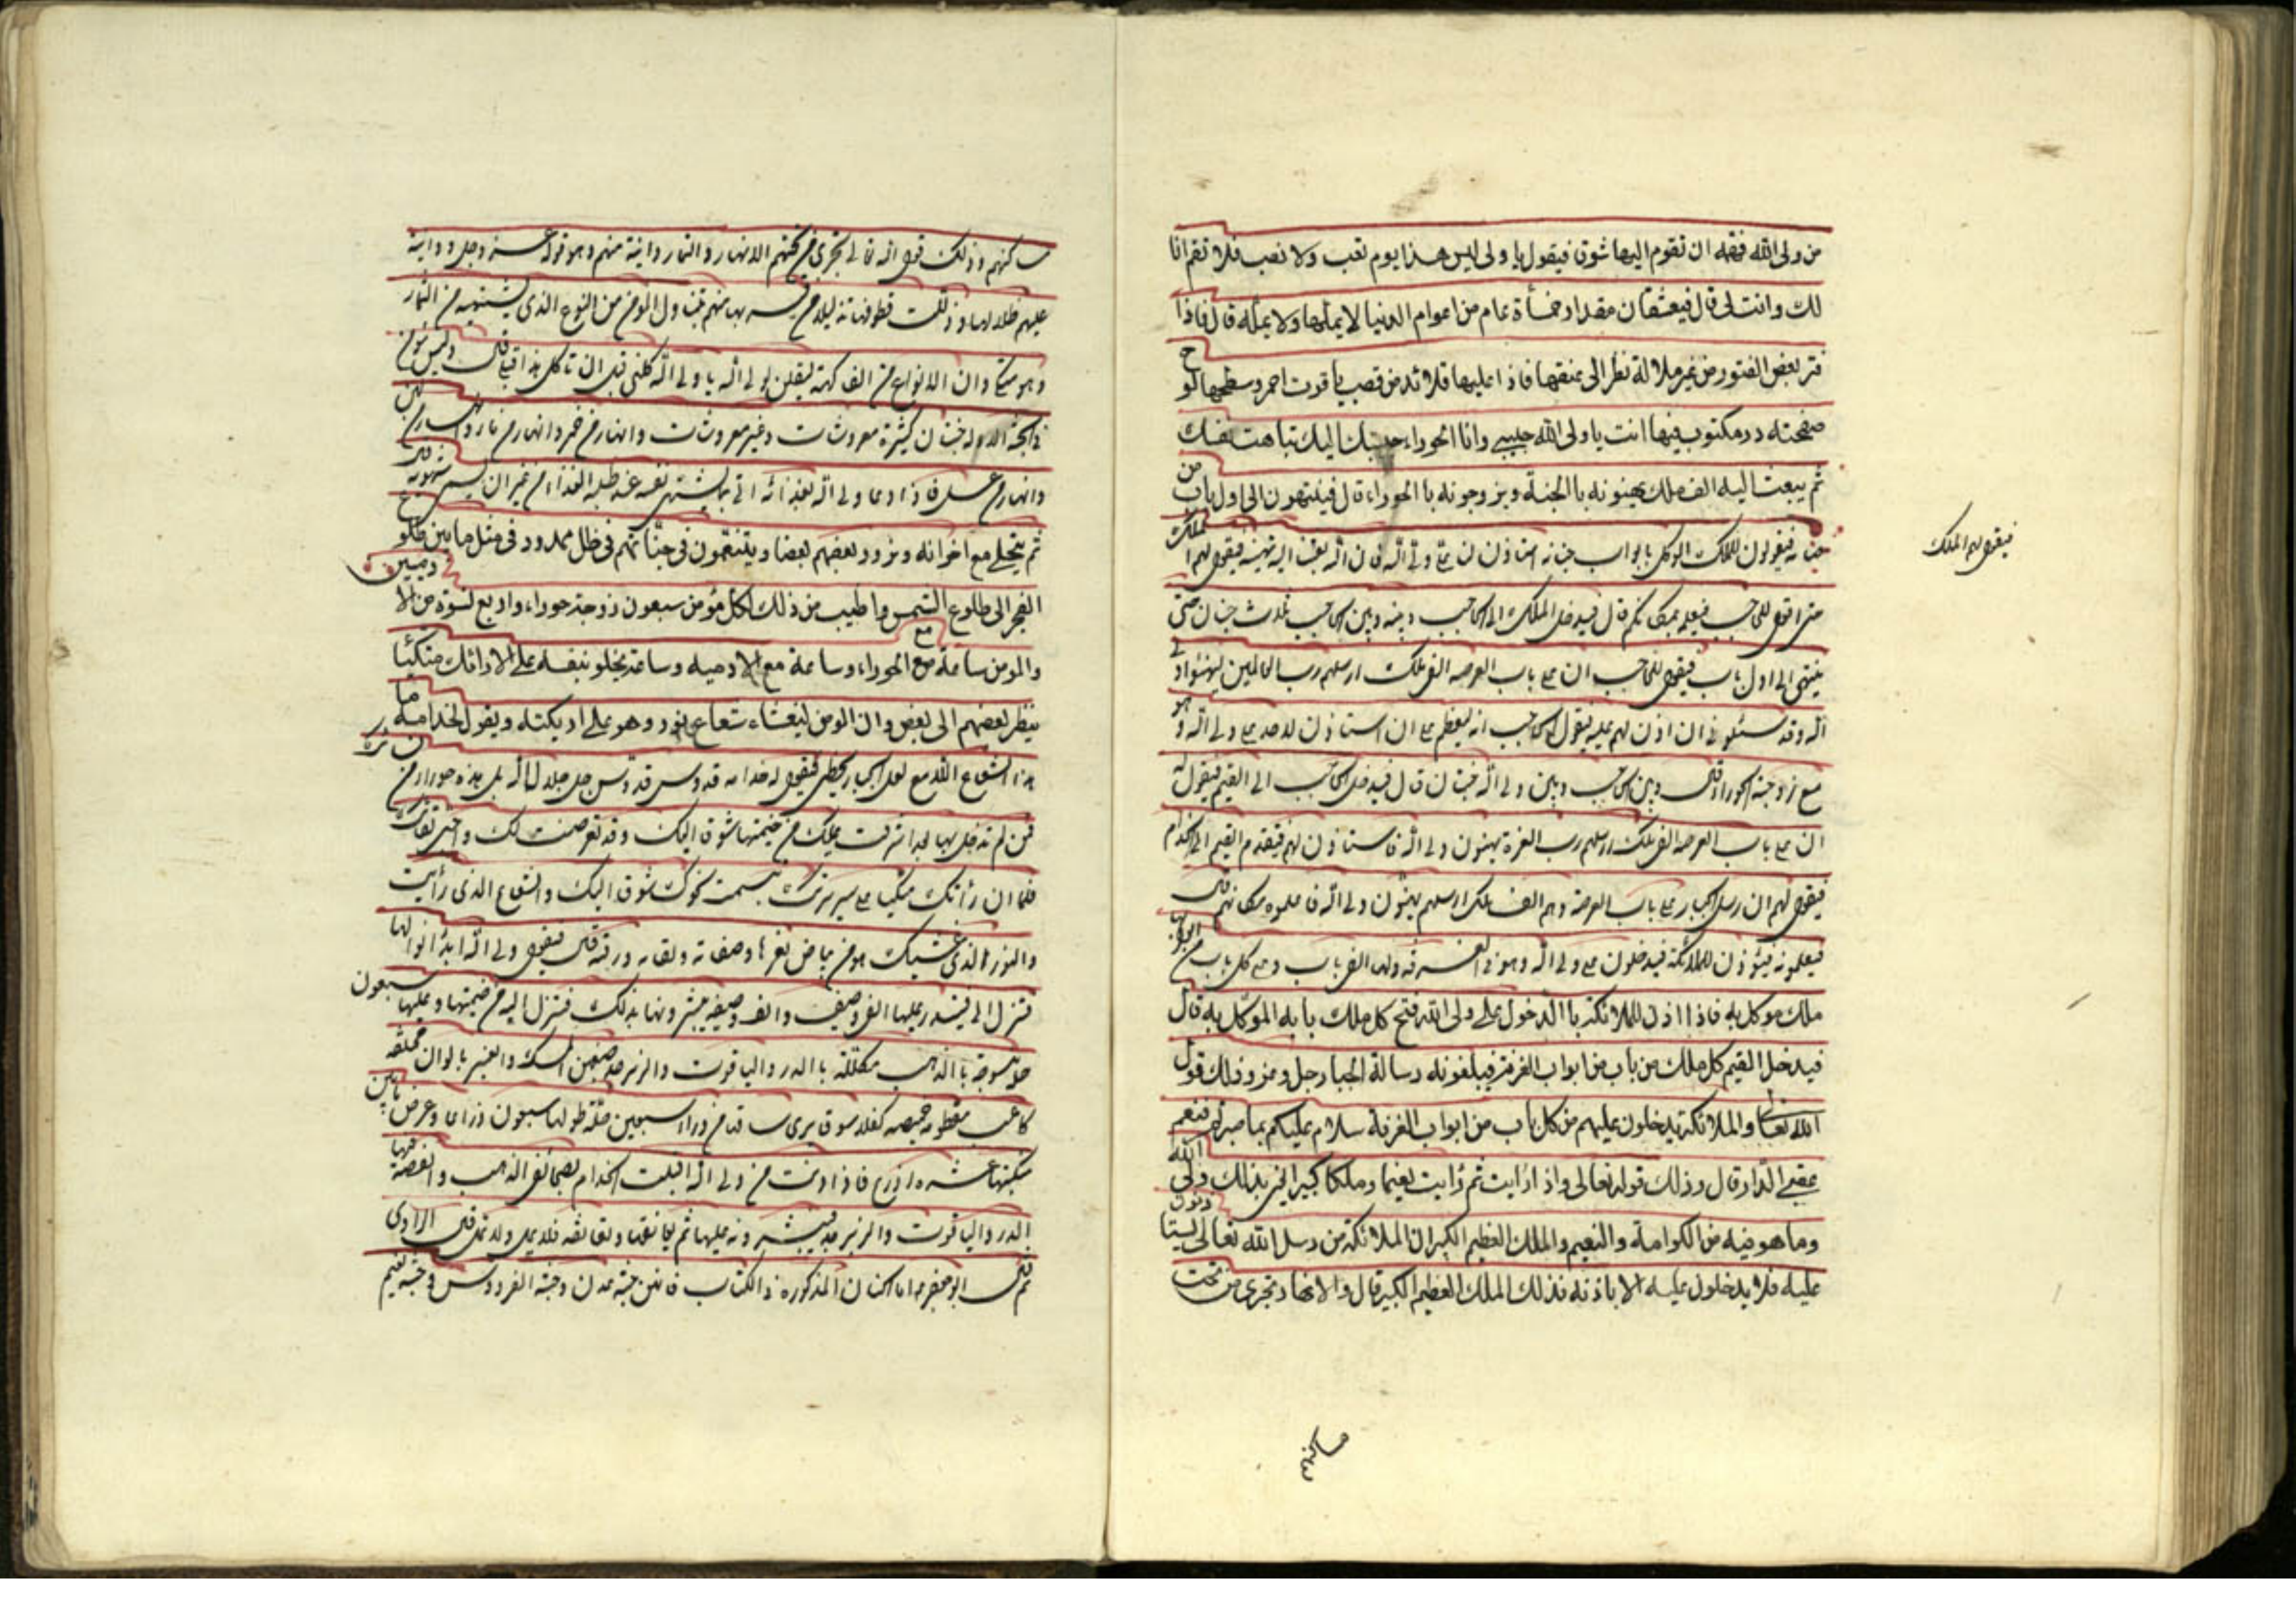 من ولى الله فهمّ ان تقوم اليها شوق فيقول يا ولى ليس هذا يوم تعب ولا نصب فلا تقم انا
لك وانت لى قال فيعتنقان مقدار خمسمأة عام من اعوام الدنيا لا يملها ولا يمله قال فاذا
فتر بعض الفتور من غير ملالة نظر الى عنقها فاذا عليها قلائد من قصب ياقوت احمر وسطها لوح
صفحته در مكتوب فيها انت يا ولى الله حبيبى وانا الحوراء حبيبتك اليك تناهت نفسك
ثم يبعث اليه الف ملك يهنونه با الجنة ويزوجونه با الحوراء قال فينتهون الى اول باب من
جنانه فيقولون للملك الموكل بابواب جنانه استاذن لنا على ولى الله فان الله بعثنا اليه نهنيه فيقول لهم الملك
فيقول لهم الملك
حتى اقول للحاجب فيعلمه بمكانكم قال فيدخل الملك الى الحاجب وبينه وبين الحاجب ثلاث جنان حتى
ينتهى الى اول باب فيقول للحاجب ان على باب العرصه الف ملك ارسلهم رب العالمين ليهنئوا ولى
الله وقد سئلونى ان اذن لهم عليه فيقول الحاجب انه ليعظم على ان استاذن لاحد على ولى الله وهو
مع زوجته الحوراء قال وبين الحاجب وبين ولى الله جنتان قال فيدخل الحاجب الى القيم فيقول له
ان على باب العرصه الف ملك ارسلهم رب العزة يهنئون ولى الله فاستاذن لهم فيتقدم القيم الى الخدام
فيقول لهم ان رسل الجبار على باب العرصة وهم الف ملك ارسلهم يهنئون ولى الله فاعلموه بمكانهم قال
فيعلمونه فيؤذن للملائكة فيدخلون على ولى الله وهو فى الغرفه ولها الف باب وعلى كل باب من ابوابها
ملك موكل به فاذا اذن للملائكة با الدخول على ولى الله فتح كل ملك بابه الموكل به قال
فيدخل القيم كل ملك من باب من ابواب الغرفة فيبلغونه رسالة الجبار جل وعز وذلك قول
الله تعالى والملائكة يدخلون عليهم من كل باب من ابواب الغرفة سلام عليكم بما صبرتم فنعم
عقبى الدار قال وذلك قوله تعالى واذا رأيت ثم رأيت نعيما وملكا كبيرا يعنى بذلك ولى الله
وما هو فيه من الكرامة والنعيم والملك العظيم الكبير ان الملائكة من رسل الله تعالى يستاذنون
عليه فلا يدخلون عليه الا باذنه فذلك الملك العظيم الكبير قال والانهار تجرى من تحت
مساكنهم
مساكنهم وذلك قول الله تعالى تجرى من تحتهم الانهار والثمار دانية منهم وهو قوله عز وجل ودانية
عليهم ظلالها وذللت قطوفها تذليلا من قربها منهم يتناول المؤمن من النوع الذى يشتهيه من الثمار
وهو متكئ وان الانواع من الفاكهة ليقلن لولى الله يا ولى الله كلنى قبل ان تاكل هذا قبلى قال وليس مؤمن
فى الجنة الا وله جنان كثيرة معروشات وغير معروشات وانهار من خمر وانهار من ماء وانهار من لبن
وانهار من عسل فاذا دعا ولى الله بغذائه اتى بما يشتهى نفسه عند طلبه الغذاء من غير ان يسمى شهوته قال
ثم يتخلى مع اخوانه ويزور بعضهم بعضا ويتنعمون فى جناتهم فى ظل ممدود فى مثل ما بين طلوع
الفجر الى طلوع الشمس واطيب من ذلك لكل مؤمن سبعون زوجة حوراء واربع نسوة من الادميين
والمؤمن ساعة مع الحوراء وساعة مع الادميه وساعة يخلو بنفسه على الارائك متكئا
ينظر بعضهم الى بعض وان المؤمن ليغشاه شعاع نور وهو على اريكته ويقول لخدامه ما
هذا الشعاع اللامع لعل الجبار لحظنى فيقول له خدامه قدوس قدوس جل جلال الله بل هذه حوراء من نسائك
ممن لم تدخل بها بعد اشرفت عليك من خيمتها شوقا اليك وقد تعرضت لك واحبت لقائك
فلما ان رأتك متكيا على سريرك تبسمت نحوك شوقا اليك والشعاع الذى رأيت
والنور الذى غشيك هو من بياض ثغرها وصفائه ونقائه ورقته قال فيقول ولى الله ائذنوا لها
فتنزل الى فيبتدر عليها الف وصيف والف وصيفه يبشرونها بذلك فتنزل اليه من خيمتها وعليها سبعون
حلة منسوجة با الذهب مكللة با الدر والياقوت والزبرجد صبغهن المسك والعنبر بالوان مختلفة
كاعب مقطومه خميصه كفلاء سوقا يرى ساقها من وراء سبعين حلة طولها سبعون ذراعا وعرض ما بين
منكبيها عشره اذرع فاذا دنت من ولى الله اقبلت الخدام بصحائف الذهب والفضة فيها
الدر والياقوت والزبرجد فينثرونه عليها ثم يعانقها وتعانقه فلا يمل ولا تمل قال الراوى
ثم قال ابو جعفر ع اما الجنان المذكوره فى الكتاب فانهن جنة عدن وجنة الفردوس وجنة نعيم